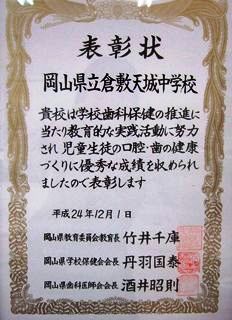 表彰状
岡山県立倉敷天城中学校
貴校は学校歯科保健の推進に
当たり教育的な実践活動に努力
され 児童生徒の口腔・歯の健康
づくりに優秀な成績を収められ
ましたので表彰します
平成24年12月1日
岡山県教育委員会教育長 竹井千庫
岡山県学校保健会会長 丹羽国泰
岡山県歯科医師会会長 酒井昭則